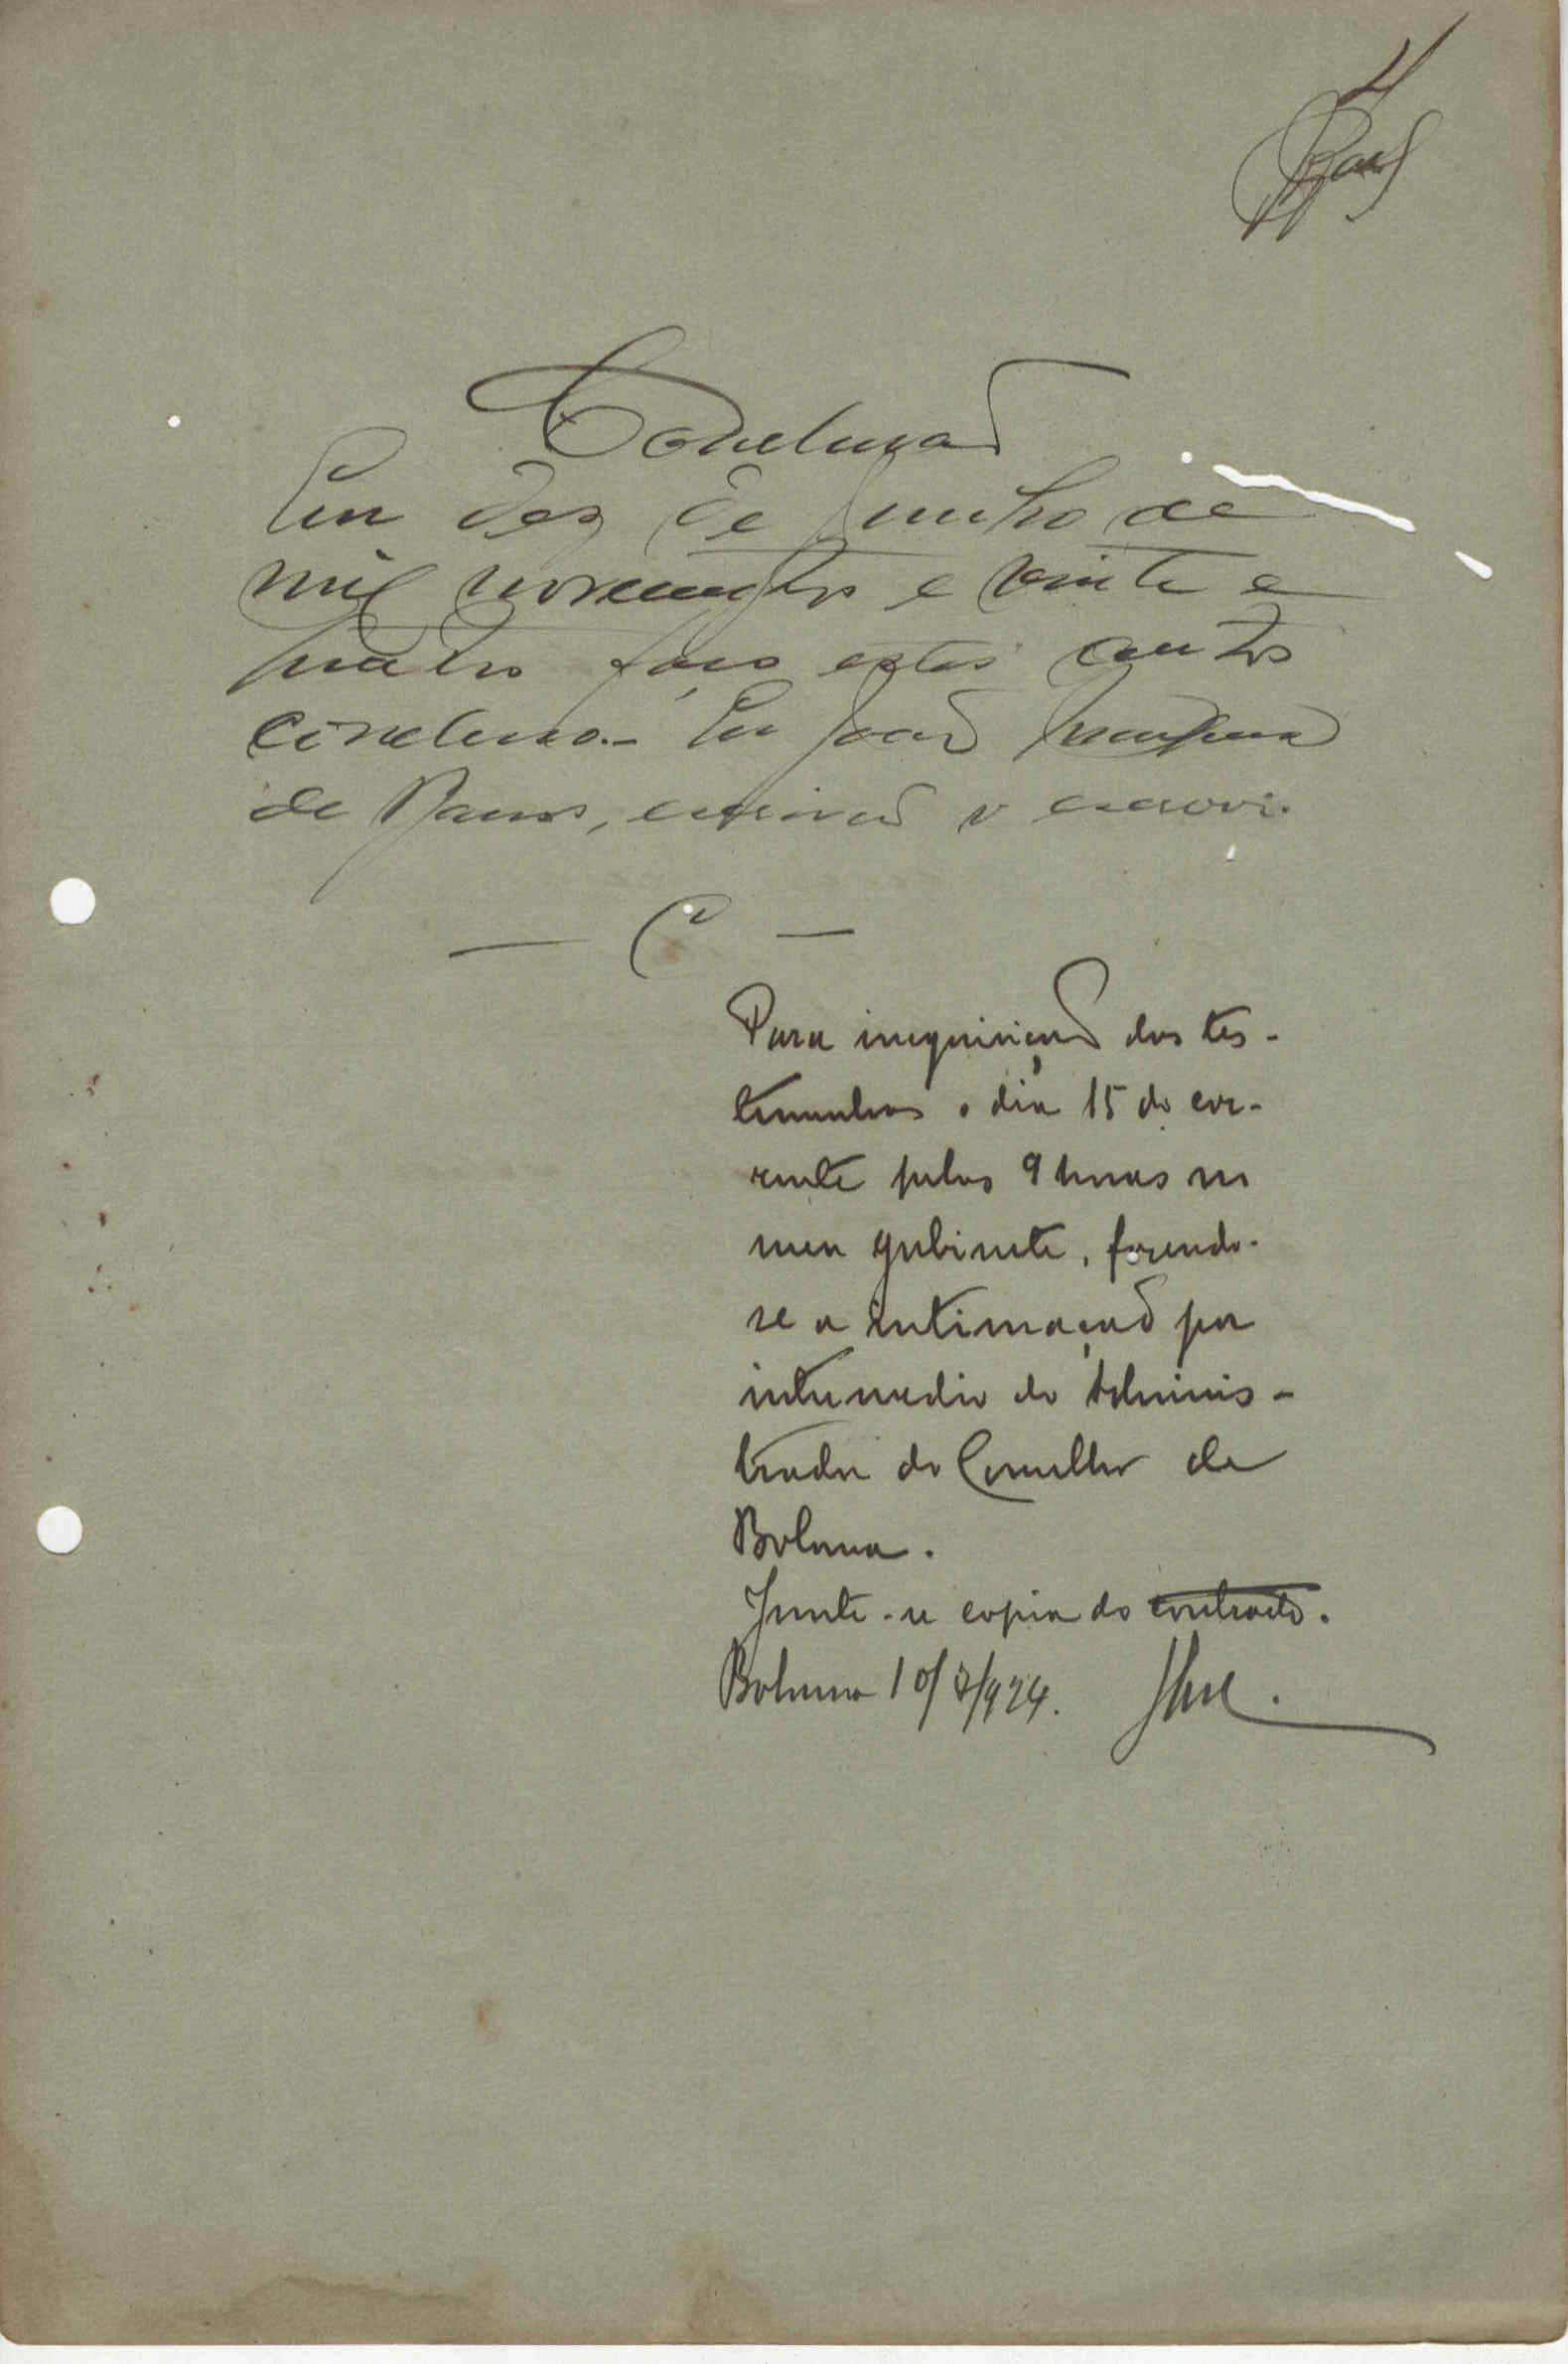 4
Conclusão
Em dez de Junho de
mil novecentos e vinte e
quatro faço estes autos
conclusos.- Eu João
de Barros, escrivão o escrevi.
— C —
Para inquirição das tes-
temunhas o dia 15 do cor-
rente pelas 9 horas no
meu gabinete, fazendo-
se a intimação por
intermedio do Adminis-
trador do Concelho de
Bolama.
Junte-se copia do contracto.
Bolama 10/7/924.